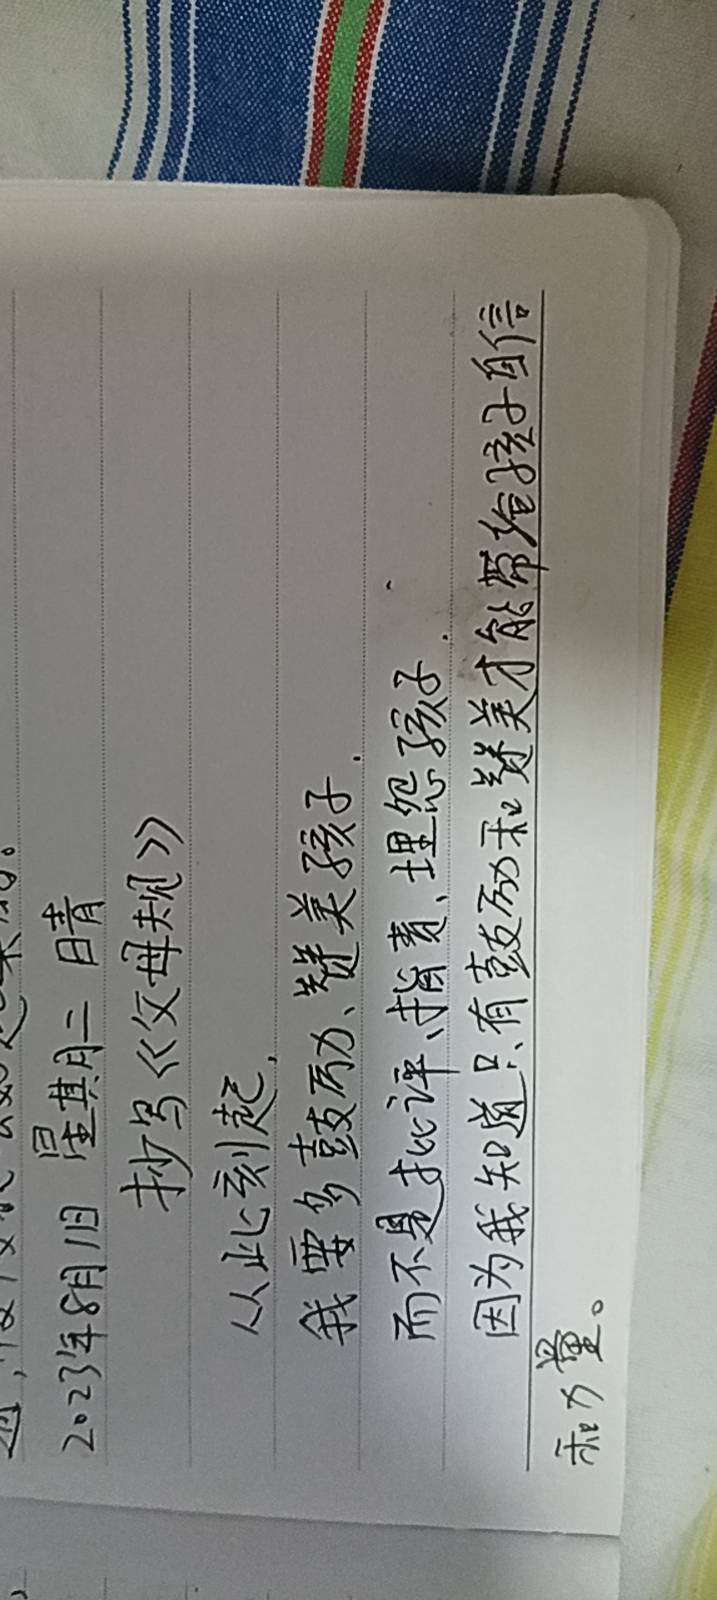 2023年8月1日 星期二 日晴
抄写《父母规》
从此刻起,
我要多鼓励、赞美孩子.
而不是批评、指责、埋怨孩子.
因为我知道只有鼓励和赞美才能带给孩子自信
和力量。